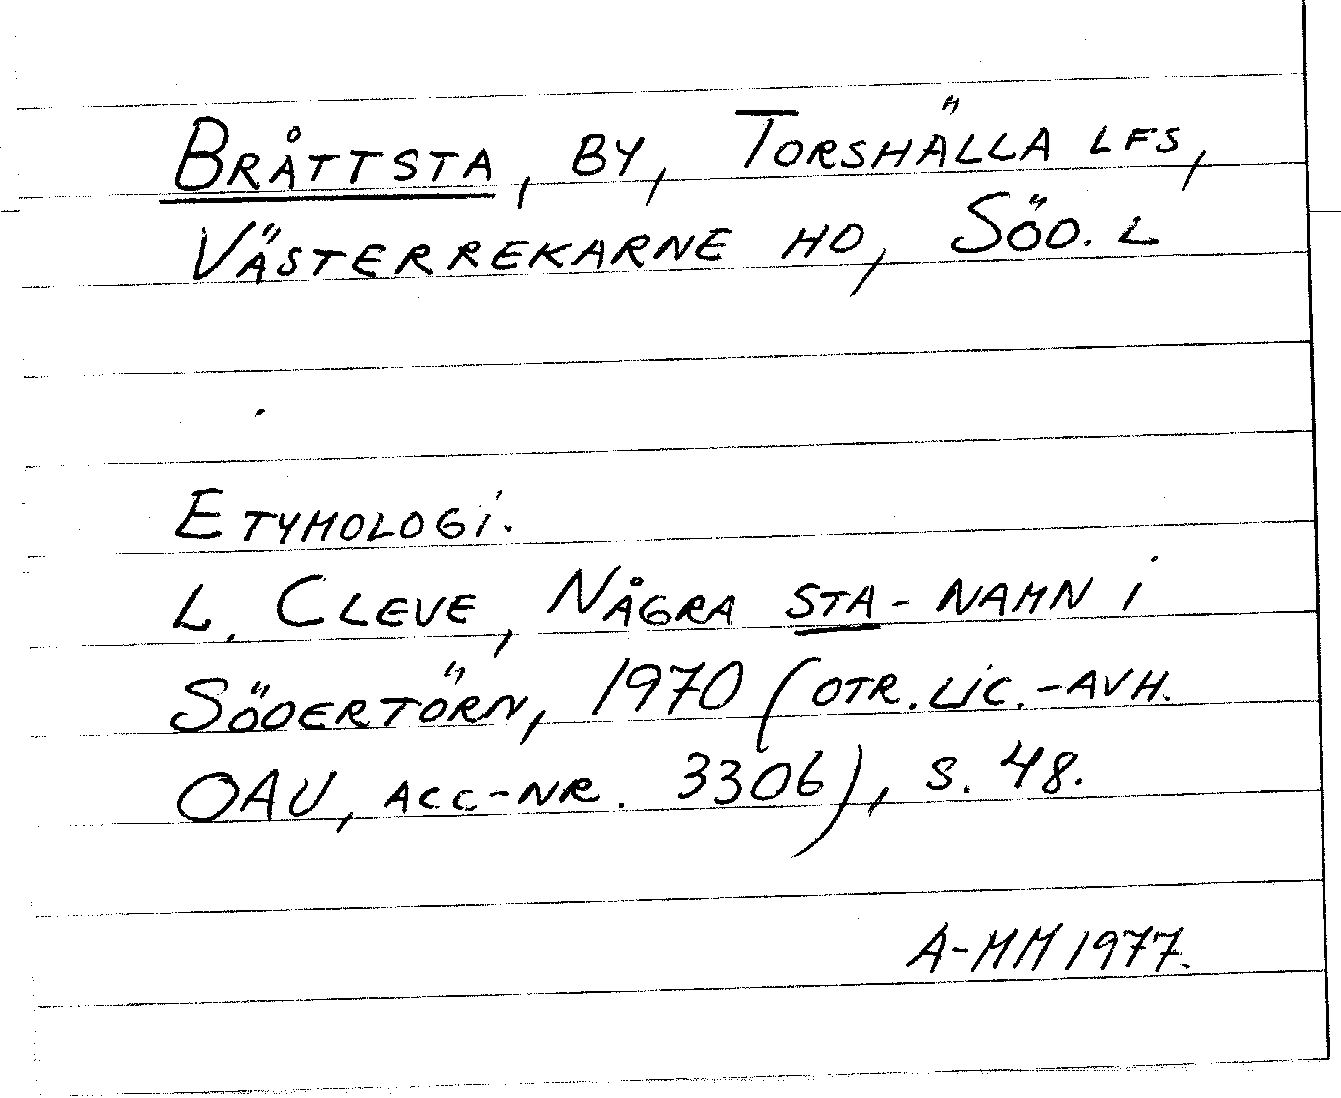 BRÅTTSTA, BY, TORSHÄLLA LFS,
VÄSTERREKARNE HD, SÖD. L
ETYMOLOGI.
L. CLEVE, NÅGRA STA-NAMN I
SÖDERTÖRN, 1970 (OTR. LIC.-AVH.
OAU, ACC-NR. 3306), S. 48.
A-MM 1977.